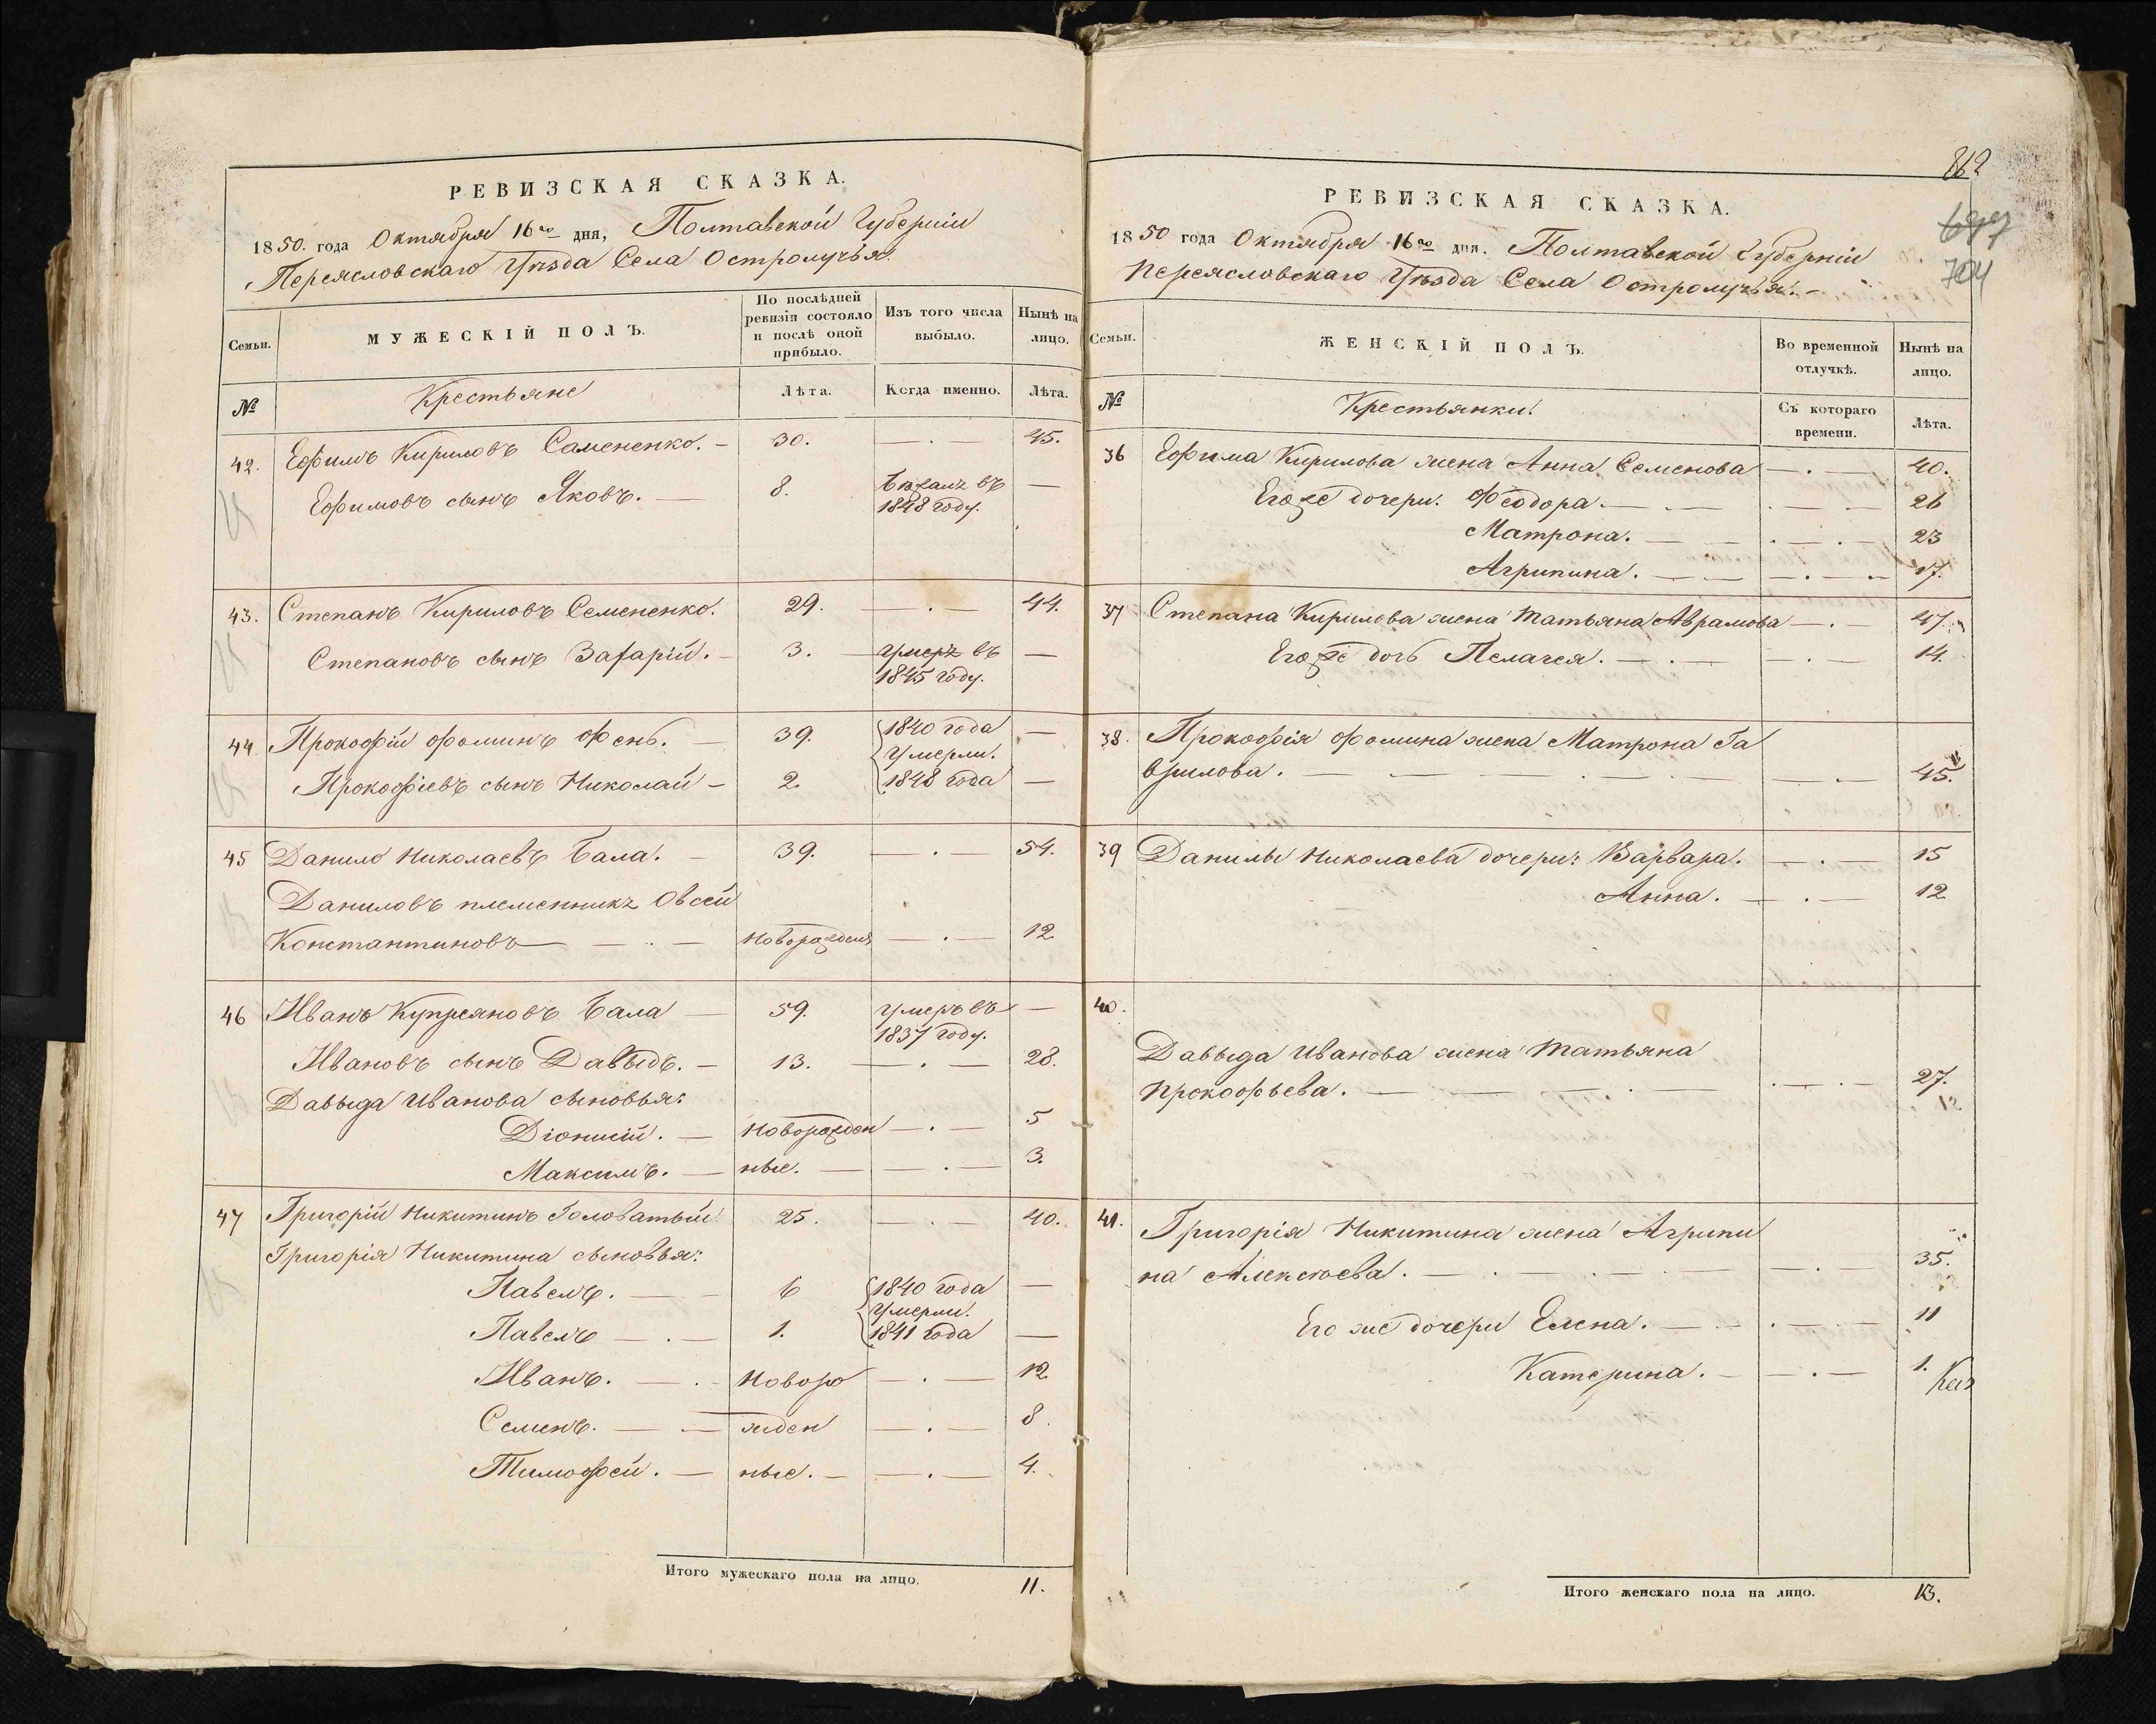 РЕВИЗСКАЯ СКАЗКА.
1850. года Октября 16го дня, Полтавской Губерніи
Переясловскаго Уѣзда Села Остролучья.
Семьи.
МУЖЕСКІЙ ПОЛЪ.
По послѣдней ревизіи состояло и послѣ оной прибыло.
Изъ того числа выбыло.
Нынѣ на лицо.
№
Крестьяне
Лѣта.
Когда именно.
Лѣта.
42. Ефимъ Кириловъ Самененко. — 30. — . — 45.
Ефимовъ сынъ Яковъ. — 8. Бѣжалъ въ —
1848 году.
43. Степанъ Кириловъ Семененко. 29. — . — 44.
Степановъ сынъ Захарій. — 3. — умеръ въ —
1845 году.
44 Прокофій Фоминъ Фень. — 39. 1840 года —
Умерли.
Прокофіевъ сынъ Николай — 2. 1848 года —
45 Данило Николаевъ Бала. — 39. — . 54.
Даниловъ племенникъ Овсей
Константиновъ — — . — новорожденъ — . — 12
46 Иванъ Купреяновъ Бала — 59. умеръ въ —
1837 году.
Ивановъ сынъ Давыдъ. — 13. — . — 28.
Давыда Иванова сыновья:
Діонисій. — новорожден — . — 5
Максимъ. — ные. — — . — 3.
47 Григорій Никитинъ Головатый 25. — . — 40.
Григорія Никитина сыновья:
Павелъ. — — 6 1840 года —
Умерли.
Павелъ — . — 1. 1841 года —
Иванъ. — . — новоро — . — 12
Семенъ. — . — жден — . — 8.
Тимофей. — ные. — — . — 4.
Итого мужескаго пола на лицо. 11.
862
697
704
РЕВИЗСКАЯ СКАЗКА.
1850 года Октября 16го дня. Полтавской Губерніи
Переясловскаго Уѣзда Села Остролучья. —
Семьи.
ЖЕНСКІЙ ПОЛЪ.
Во временной отлучкѣ.
Нынѣ на лицо.
№
Крестьянки.
Съ котораго времени.
Лѣта.
36 Ефима Кирилова жена Анна Семенова — . — 40.
Его же дочери: Феодора. — . — . — — 26
Матрона. — — . — . — 23
Агрипина. — — — . — — 17.
37 Степана Кирилова жена Татьяна Аврамова — . — 47.
Его же дочь Пелагея. — . — — . — 14.
38. Прокофія Фомина жена Матрона Га
врилова. — — . — — . — 45.
39 Данилы Николаева дочери: Варвара. — . — 15
Анна. — . — 12
40.
Давыда Иванова жена Татьяна
Прокофьева. — — — . . — . — 27.
41. Григорія Никитина жена Агрипи
на Алексѣева. — . — . — — . — 35.
Его же дочери Елена. — . . — . — 11
Катерина. — — . — 1.
Итого женскаго пола на лицо. 13.